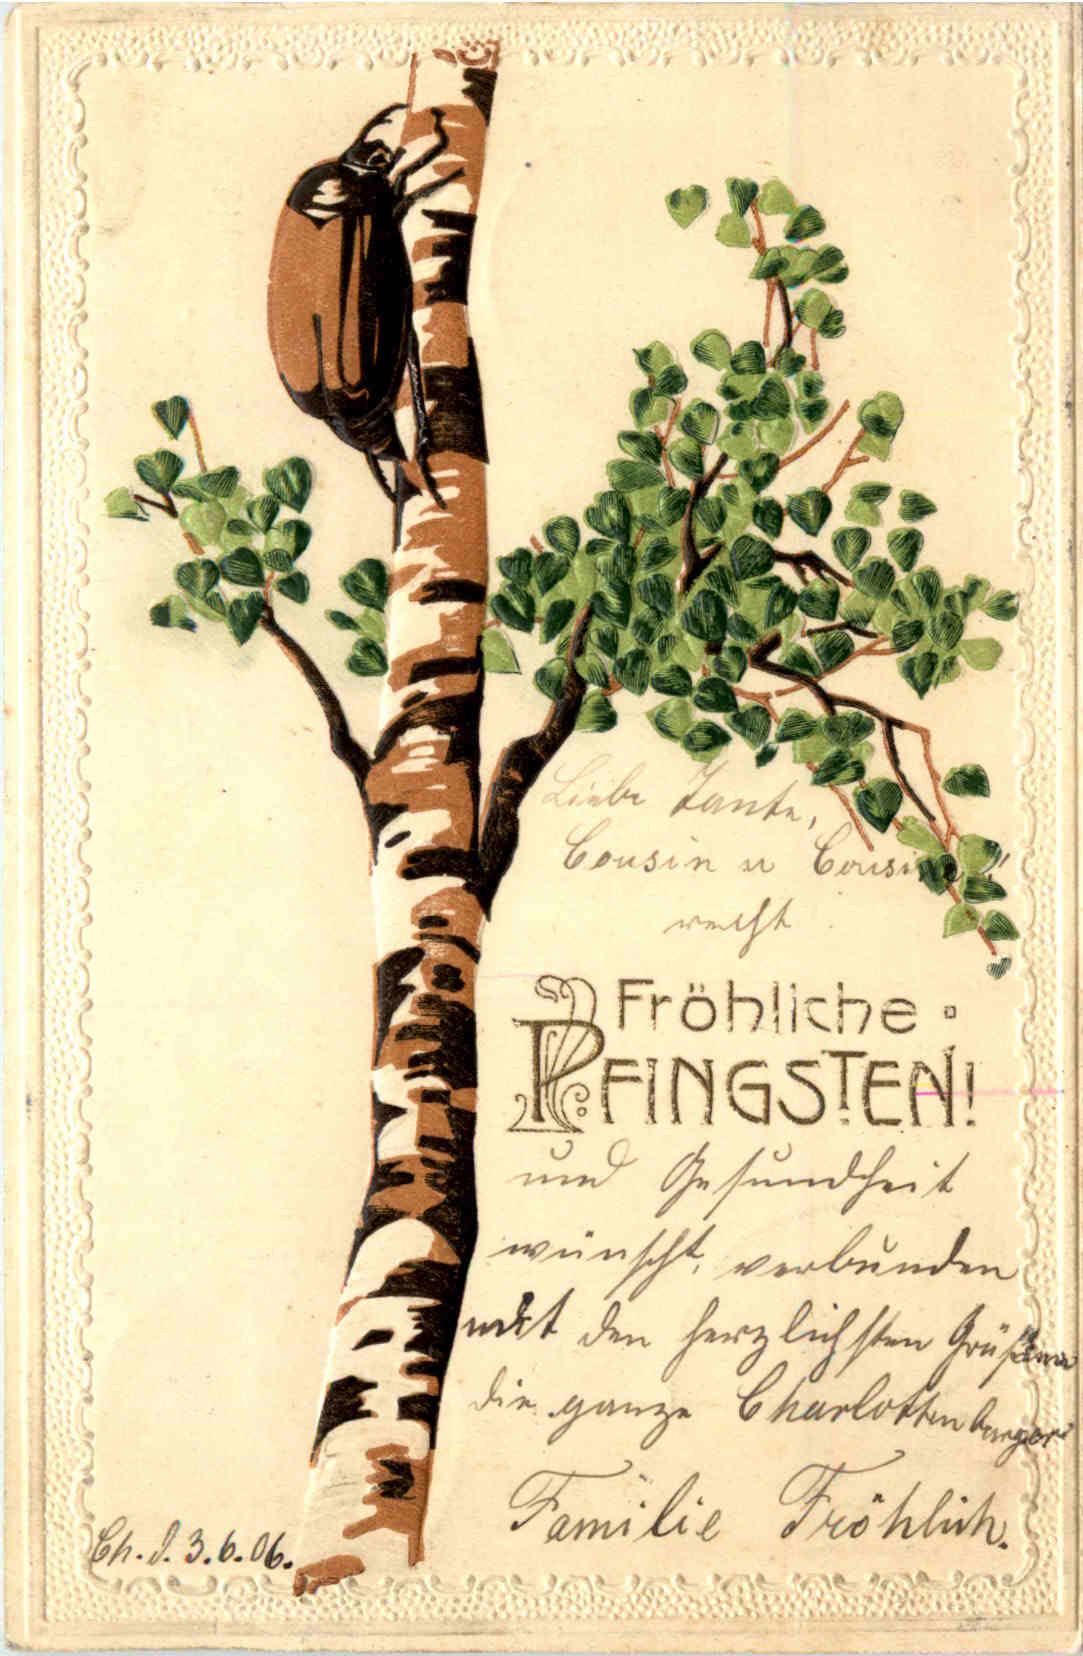 Liebe Tante,
Cousin u Cousine!!
recht
Fröhliche
PFINGSTEN!
und Gesundheit
wünscht, verbunden
mit den herzlichsten Grüßen
die ganze Charlottenburger
Familie Fröhlich.
Ch. d. 3.6.06.